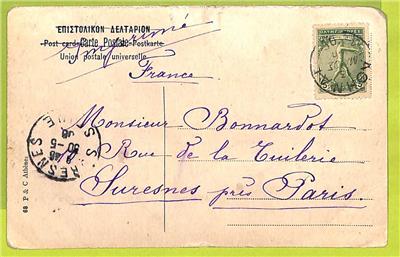 ΕΠΙΣΤΟΛΙΚΟΝ ΔΕΛΤΑΡΙΟΝ
Post card-Carte Postale-Postkarte
Union postale universelle
Imprimé
France
ΑΘΗΝΑΙ
Monsieur Bonnardot
Rue de la Tuilerie
Suresnes près Paris.
SURESNES
68 P & C Athènes